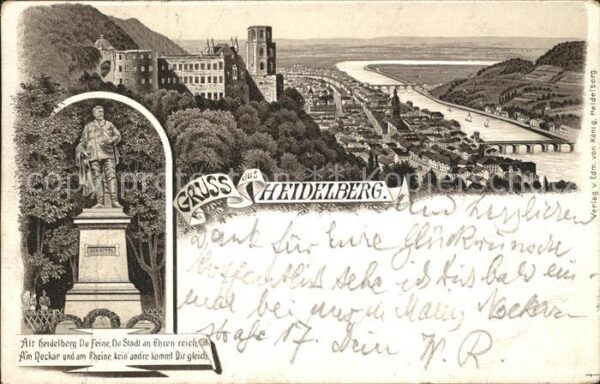 GRUSS aus HEIDELBERG.
Verlag v. Edm. von König, Heidelberg.
Und herzlichen
Dank für Eure Glückwünsche
Hoffentlich sehe ich Dich bald ein-
mal bei uns in
straße 17. Dein W. R.
Alt Heidelberg Du Feine, Du Stadt an Ehren reich,
Am Neckar und am Rheine, kein' andre kommt Dir gleich.